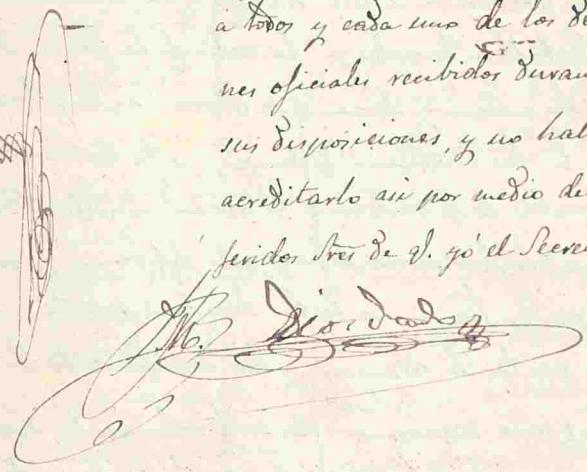 á todos y cada uno de los de
nes oficiales recibidos duran
sus disposiciones, y no hal
acreditarlo asi por medio de
feridos Sres de q. yó el Secre
M. Diosdado